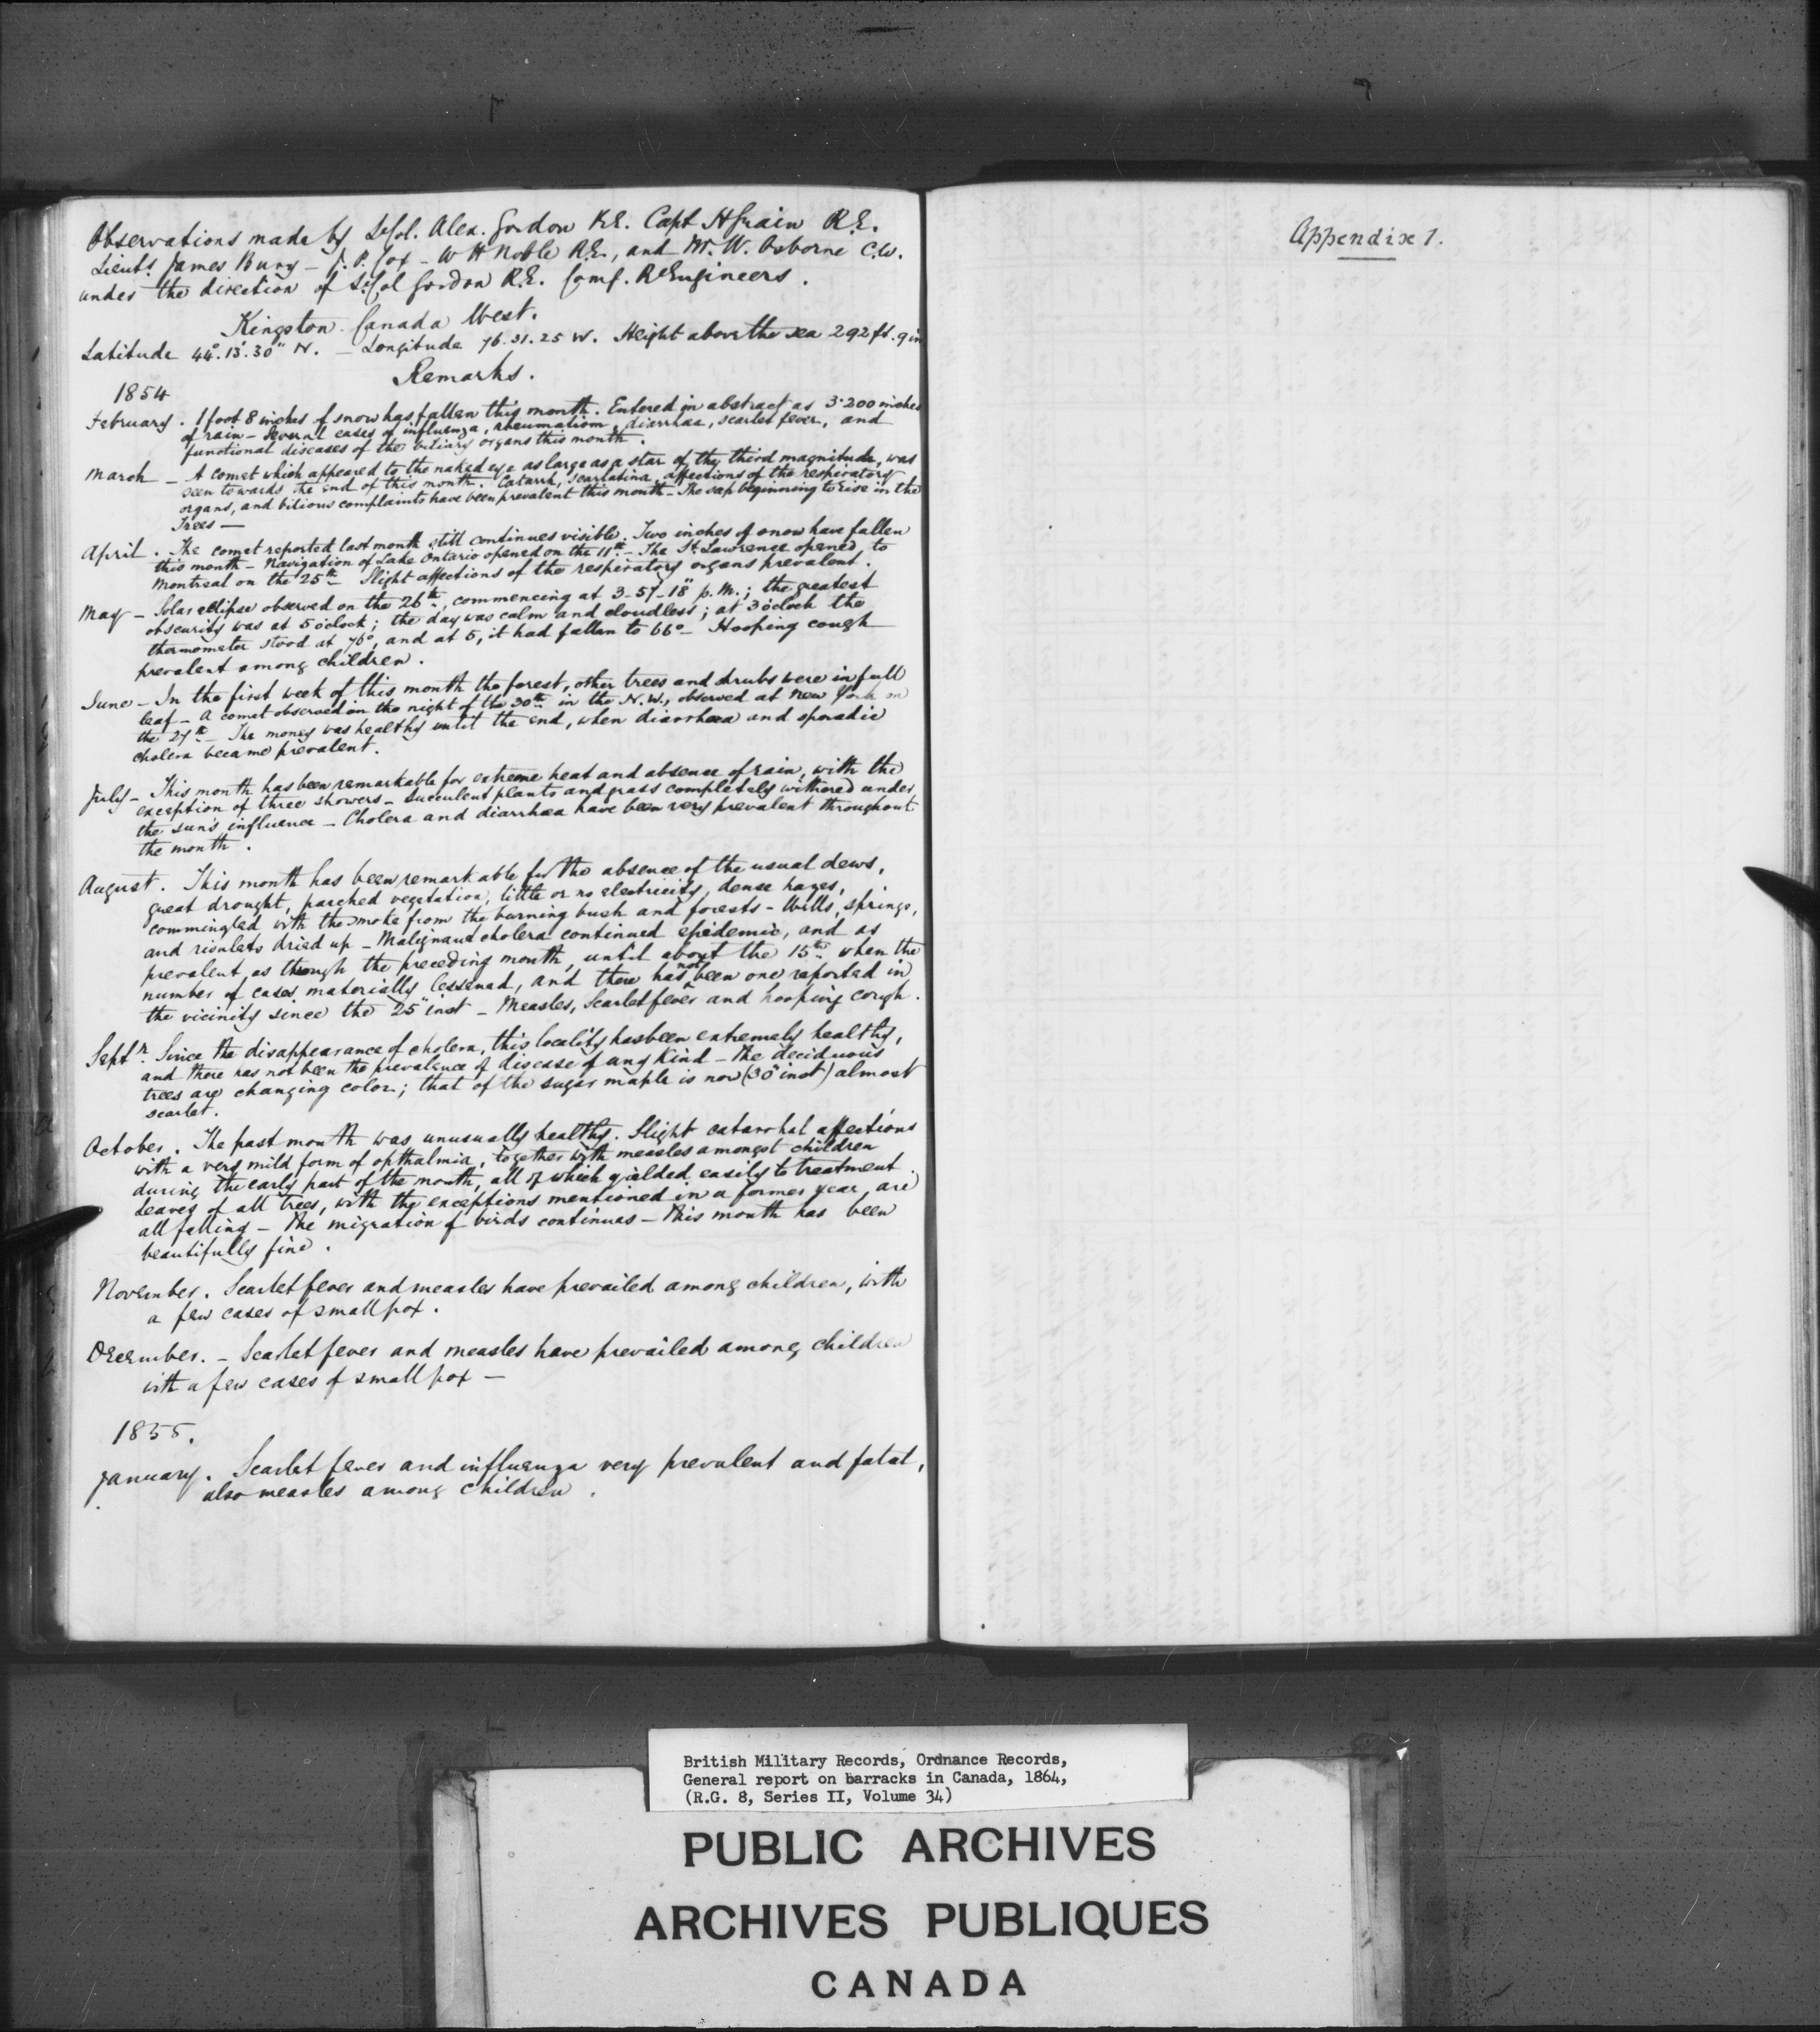 Observations made by Lt Col. Alex. Gordon R.E. Capt H Grain R.E.
Lieuts James Bury - J. P. Cox - W H Noble R.E., and Mr. W. Osborne C.W.
under the direction of Lt Col Gordon R.E. Comg. Rl Engineers.
Kingston - Canada West.
Latitude 44°. 13'. 30" N. - Longitude 76. 31. 25 W. Height above the sea 292 ft. 9 in
Remarks.
1854
February. 1 foot 8 inches of snow has fallen this month. Entered in abstract as 3.200 inches
of rain - Several cases of influenza, rheumatism, diarrhæa, scarlet fever, and
functional diseases of the biliary organs this month.
March - A comet which appeared to the naked eye as large as a star of the third magnitude, was
seen towards the end of this month. Catarrh, scarlatina, affections of the respiratory
organs, and bilious complaints have been prevalent this month - The sap beginning to rise in the
Trees -
April. The comet reported last month still continues visible. Two inches of snow have fallen
this month - Navigation of Lake Ontario opened on the 11th - The St. Lawrence opened to
Montreal on the 25th Slight affections of the respiratory organs prevalent.
May - Solar eclipse observed on the 26th, commencing at 3-57-18" p.m.; the greatest
obscurity was at 5 o'clock; the day was calm and cloudless; at 3 o'clock the
thermometer stood at 76°, and at 5, it had fallen to 66° - Hooping cough
prevalent among children.
June - In the first week of this month the forest, other trees and shrubs were in full
leaf - A comet observed on the night of the 30th in the N.W., observed at New York on
the 27th - The money was healthy until the end, when diarrhæa and sporadic
cholera became prevalent.
July - This month has been remarkable for extreme heat and absence of rain, with the
exception of three showers - Succulent plants and grass completely withered under
the sun's influence - Cholera and diarrhæa have been very prevalent throughout
the month.
August. This month has been remarkable for the absence of the usual dews,
great drought, parched vegetation, little or no electricity, dense hazes,
commingled with the smoke from the burning bush and forests - Wells, springs,
and rivulets dried up - Malignant cholera continued epidemic, and as
prevalent as through the preceding month, until about the 15th when the
number of cases materially lessened, and there has not been one reported in
the vicinity since the 25" inst - Measles, Scarlet fever and hooping cough.
Septr. Since the disappearance of cholera, this locality has been extremely healthy,
and there has not been the prevalence of disease of any kind - The deciduous
trees are changing color; that of the sugar maple is now (30" inst) almost
scarlet.
October. The past month was unusually healthy. Slight catarrhal affections
with a very mild form of opthalmia, together with measles amongst children
during the early part of the month, all of which yielded easily to treatment.
Leaves of all trees, with the exceptions mentioned in a former year, are
all falling - The migration of birds continues - This month has been
beautifully fine.
November. Scarlet fever and measles have prevailed among children, with
a few cases of small pox.
December. - Scarlet fever and measles have prevailed among children
with a few cases of small pox -
1855.
January. Scarlet fever and influenza very prevalent and fatal,
also measles among children.
Appendix 1.
British Military Records, Ordnance Records,
General report on barracks in Canada, 1864,
(R.G. 8, Series II, Volume 34)
PUBLIC ARCHIVES
ARCHIVES PUBLIQUES
CANADA